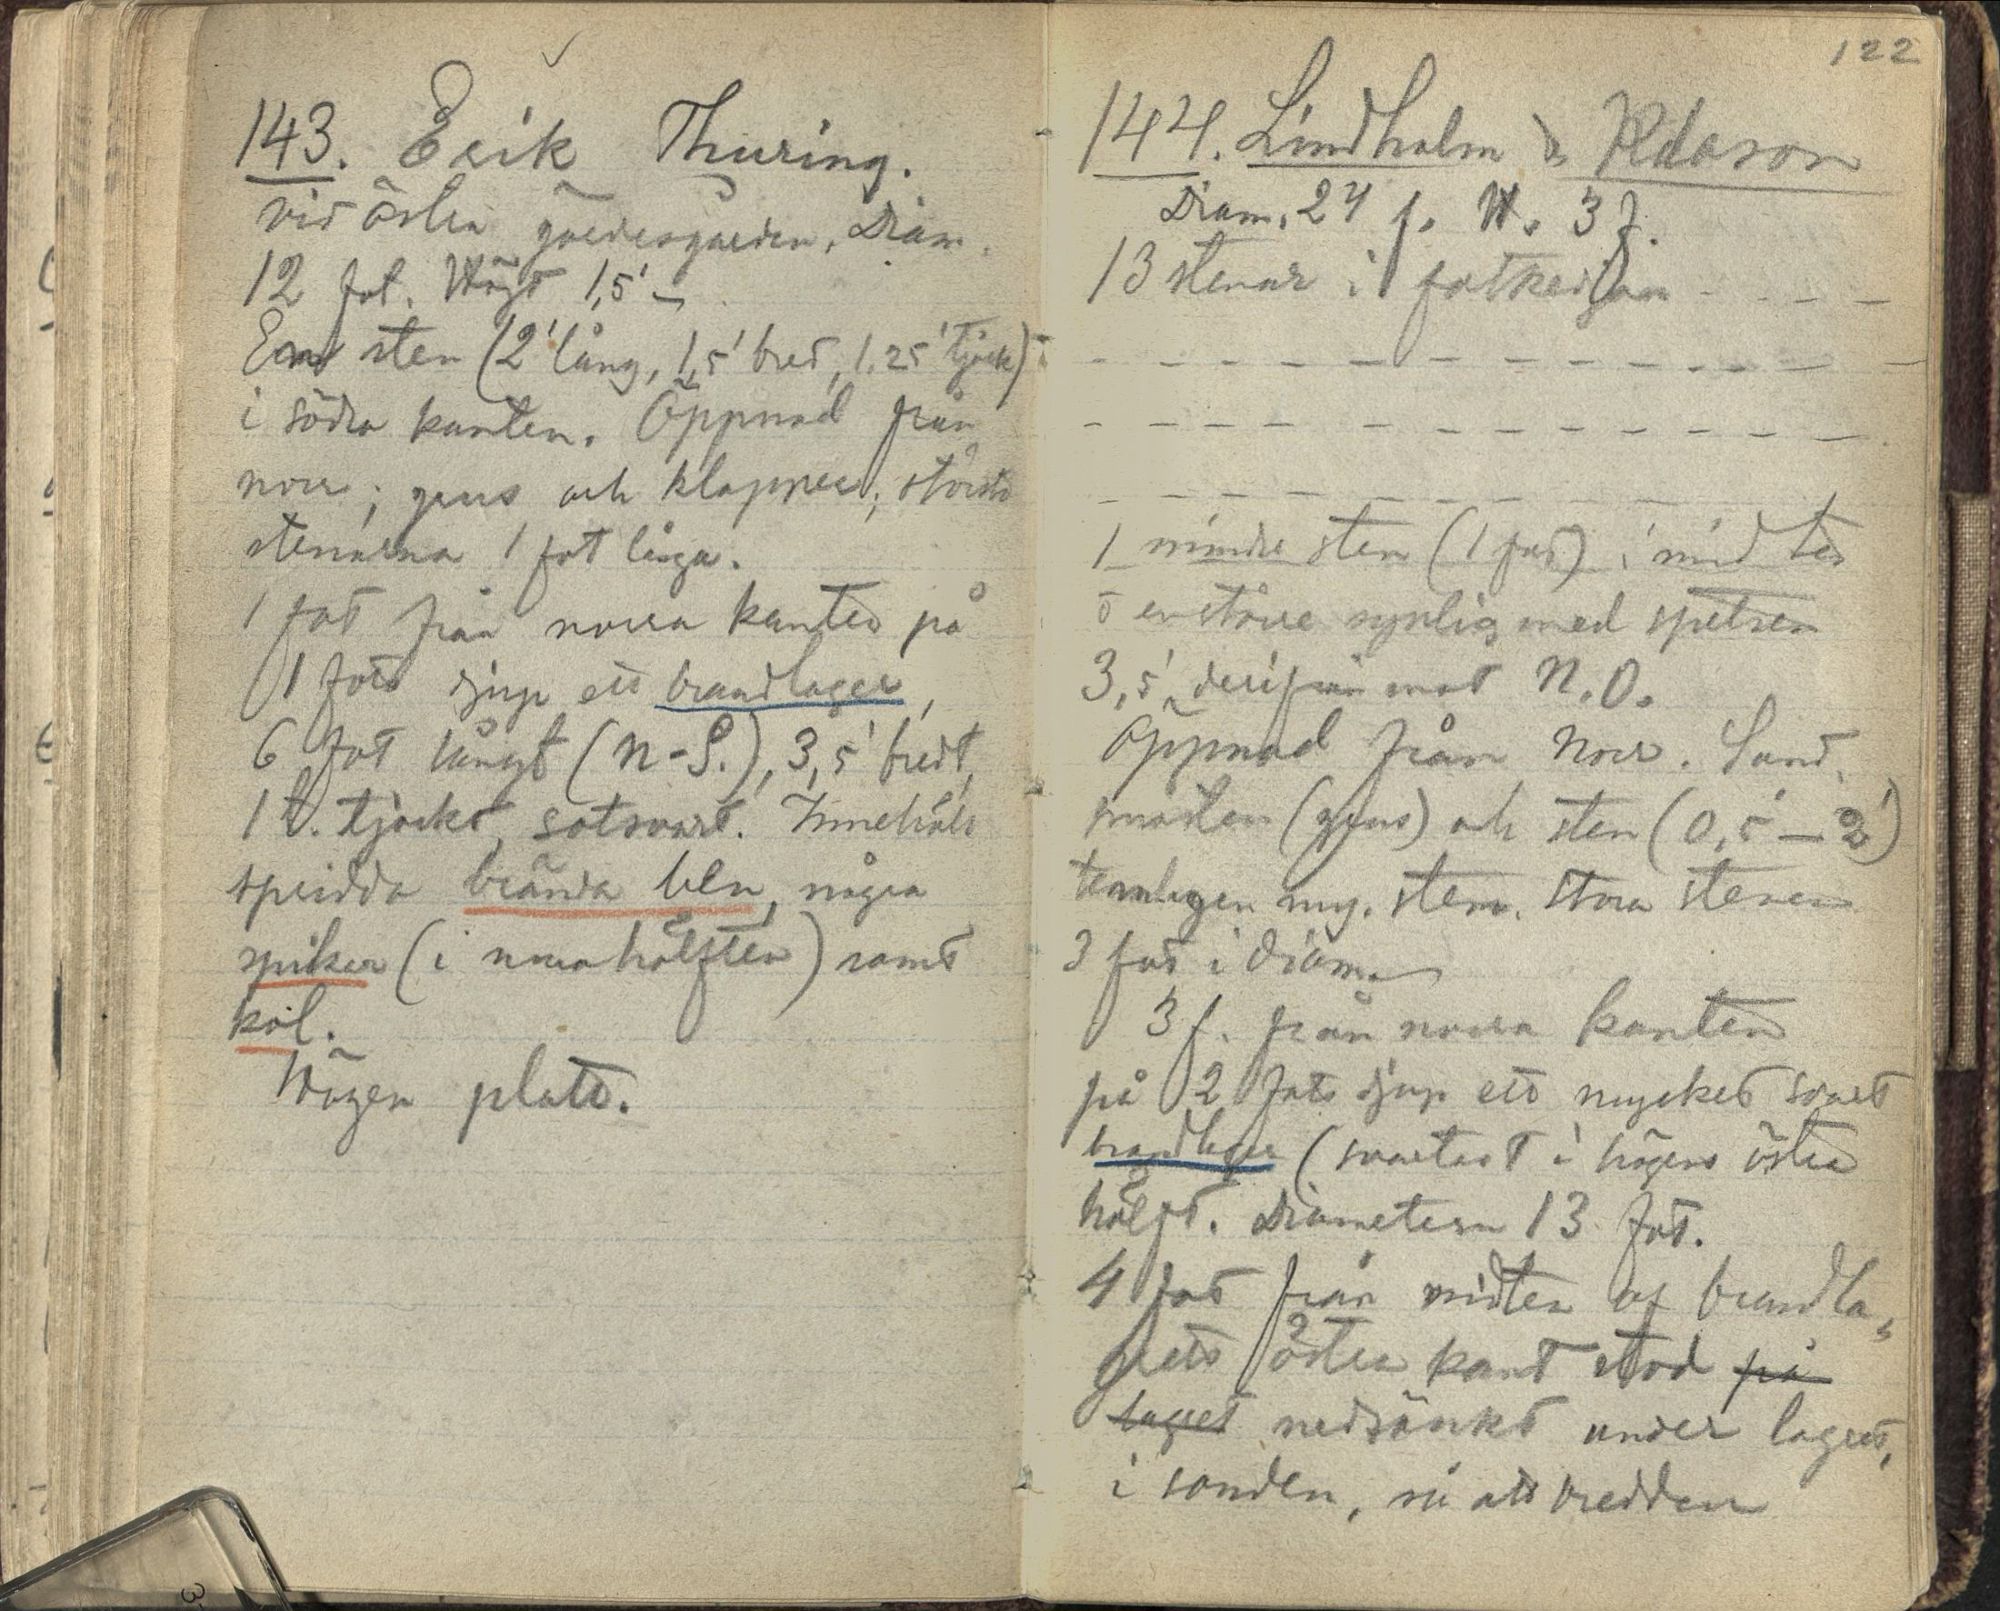 143. Erik Thuring.
vid östra gärdesgården. Diam.
12 fot. Högd 1,5' –
En sten (2' lång, 1,5' bred, 1.25' tjock)
i södra kanten. Öppnad från
norr; grus och klapper; största
stenarna 1 fot långa.
1 fot från norra kanten på
1 fots djup ett brandlager,
6 fot långt (N-S.), 3,5' bredt,
1 t. tjockt, sotsvart. Innehöll
spridda brända ben, några
spikar (i norra hälften) samt
kol.
Högen platt.
122
144. Lindholm & Pederson
Diam. 24 f. H. 3 f.
13 stenar i fotkedjan - - - -
1 mindre sten (1 fot) i midten
o en större synlig med spetsen
3,5' derifrån mot N.O.
Öppnad från Norr. Sand,
(grus) och sten (0,5' – 2')
temligen myc. sten. Stora stenen
3 fot i diam.
3 f. från norra kanten
på 2 fots djup ett mycket svart
brandlager (svartast i högens östra
hälft. Diametern 13 fot.
4 fot från midten af brandla-
grets östra kant stod på
lagret nedsänkt under lagret,
i sanden, så att bredden